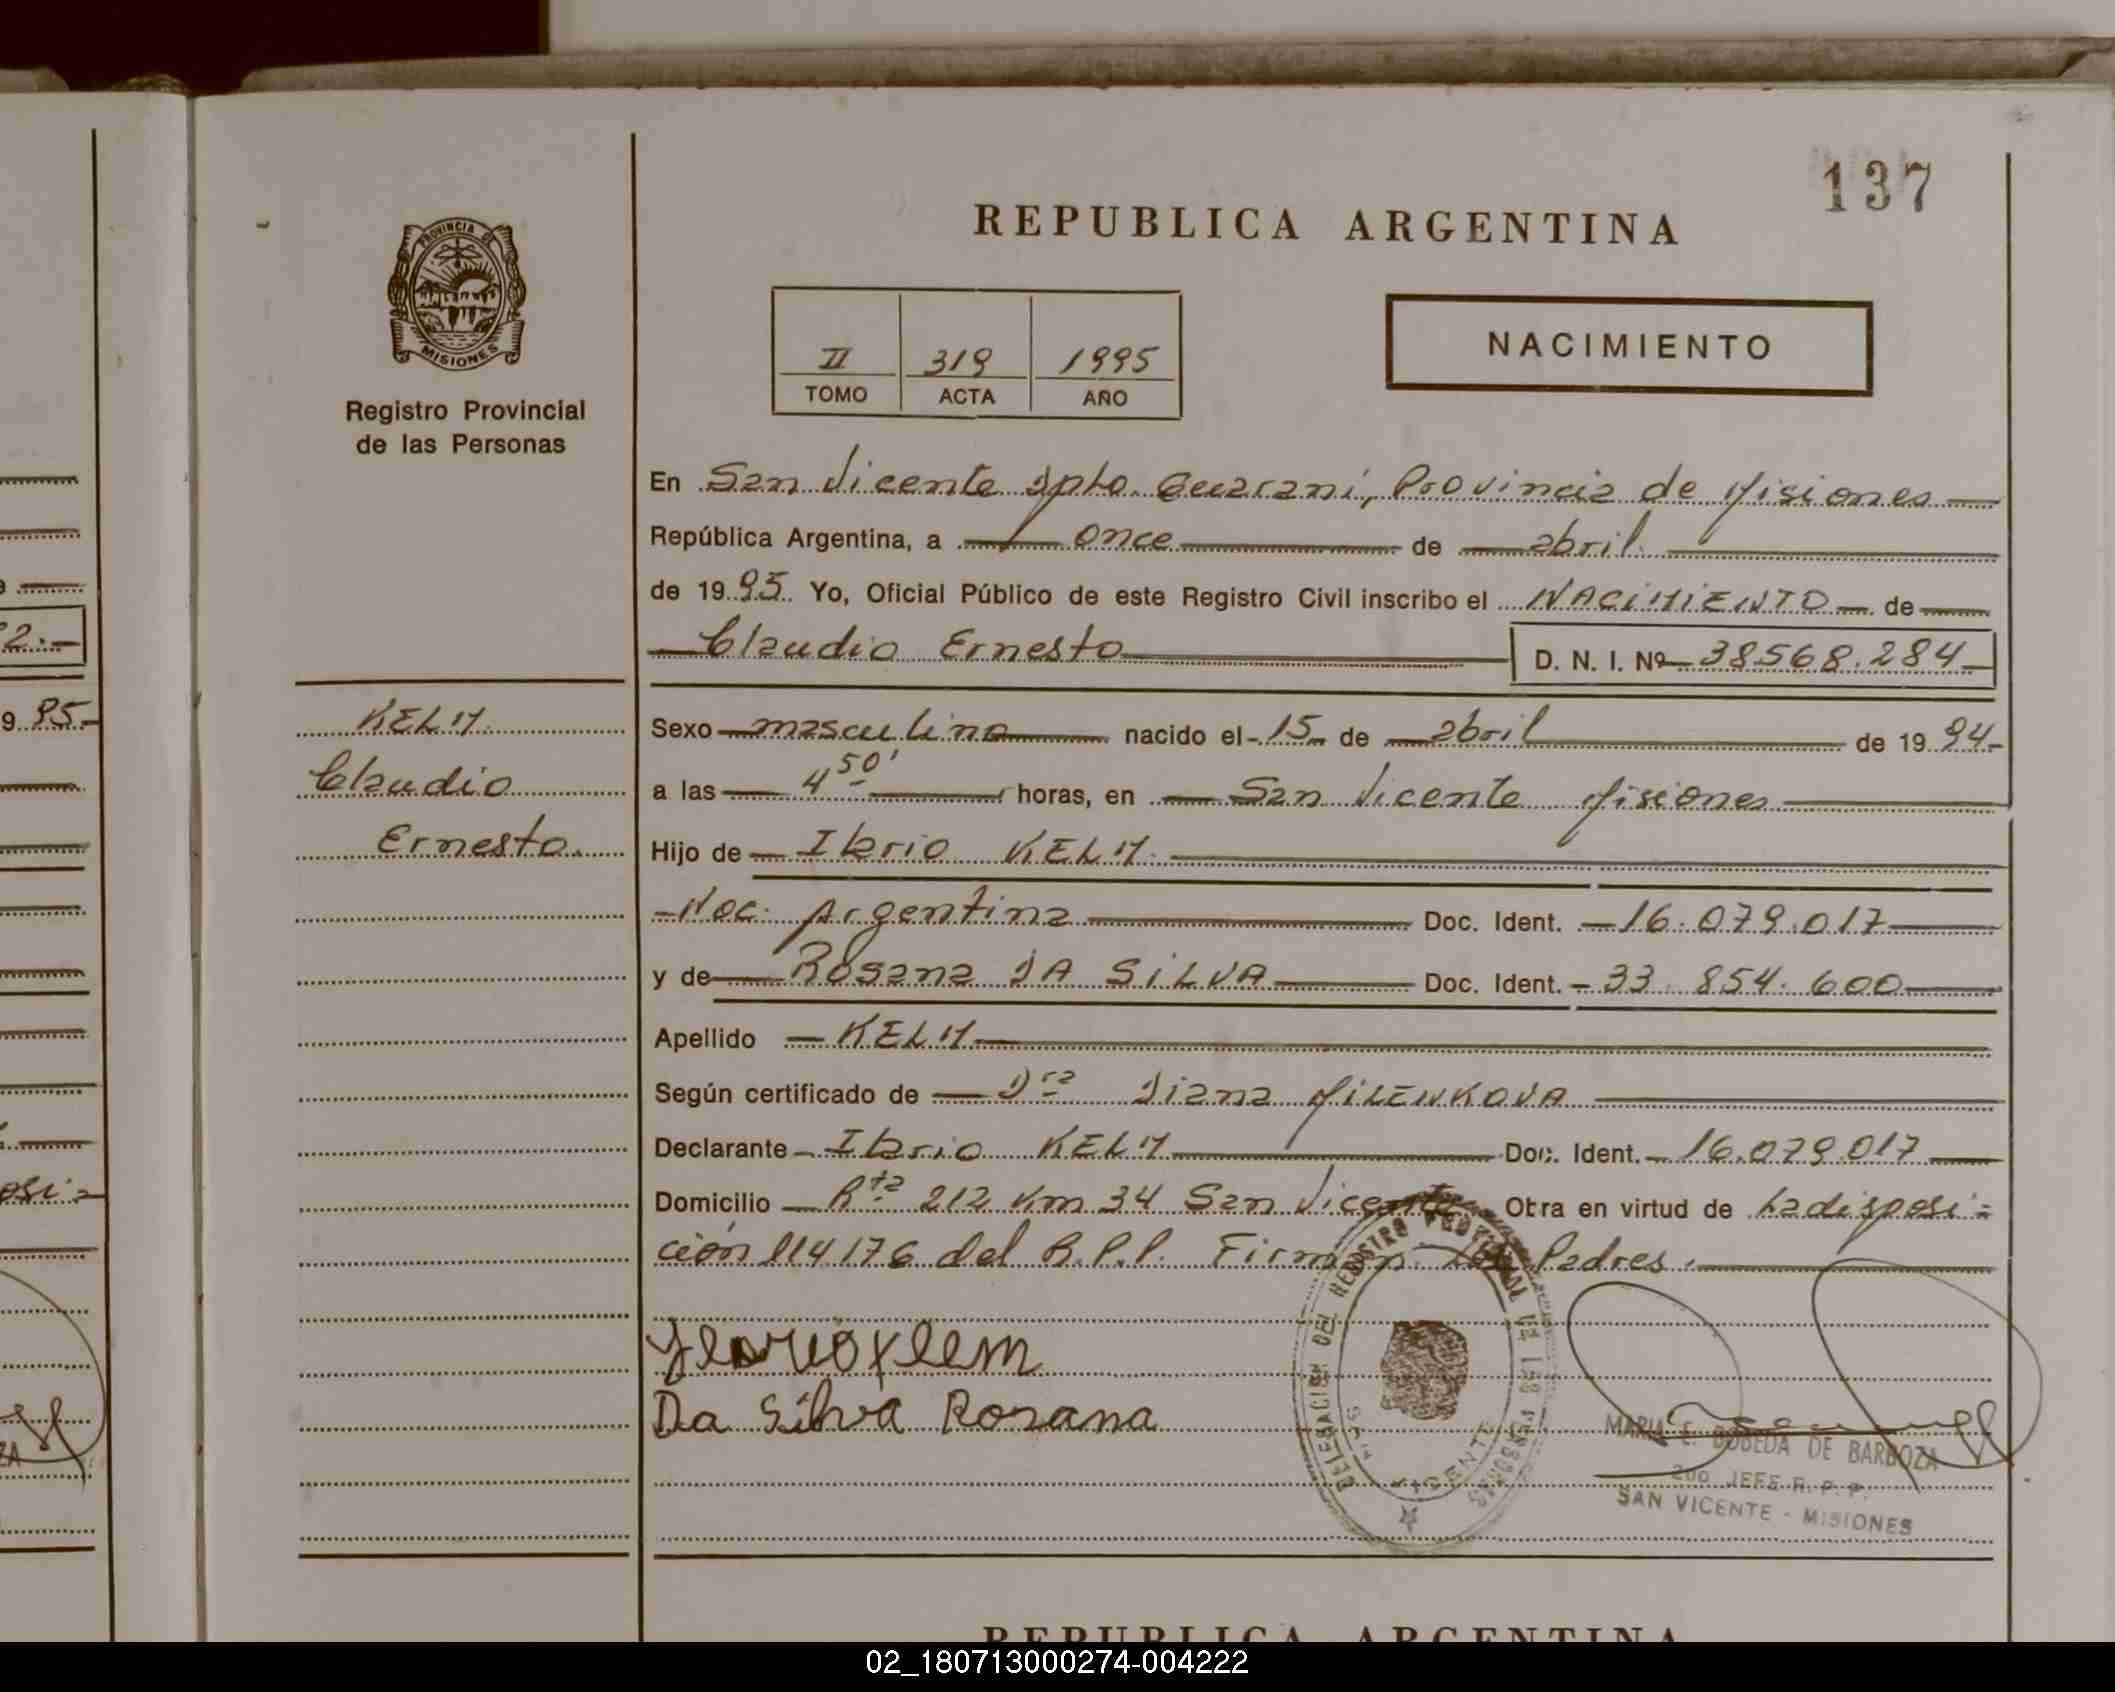 137
REPUBLICA ARGENTINA
PROVINCIA DE
MISIONES
Registro Provincial
de las Personas
II 319 1995
TOMO ACTA AÑO
NACIMIENTO
En San Vicente Dpto. Guarani, Provincia de Misiones
República Argentina, a once de abril.
de 1995. Yo, Oficial Público de este Registro Civil inscribo el NACIMIENTO de
Claudio Ernesto D. N. I. Nº 38568.284
KELM.
Claudio
Ernesto.
Sexo masculino nacido el 15 de abril de 1994
a las 4 50' horas, en San Vicente Misiones
Hijo de Ilario KELM.
Nac. Argentina Doc. Ident. 16.079.017
y de Rosana DA SILVA Doc. Ident. 33.854.600
Apellido KELM
Según certificado de Dra Diana MILENKOVA
Declarante Ilario KELM Doc. Ident. 16.079.017
Domicilio Rta 212 Km 34 San Vicente Obra en virtud de La disposi-
ción 114176 del R.P.P. Firman Los Padres.
Da Silva Rosana
SAN VICENTE
MARIA E. BOBEDA DE BARBOZA
2do JEFE R. P. P.
SAN VICENTE - MISIONES
9 95
REPUBLICA ARGENTINA
02_180713000274-004222